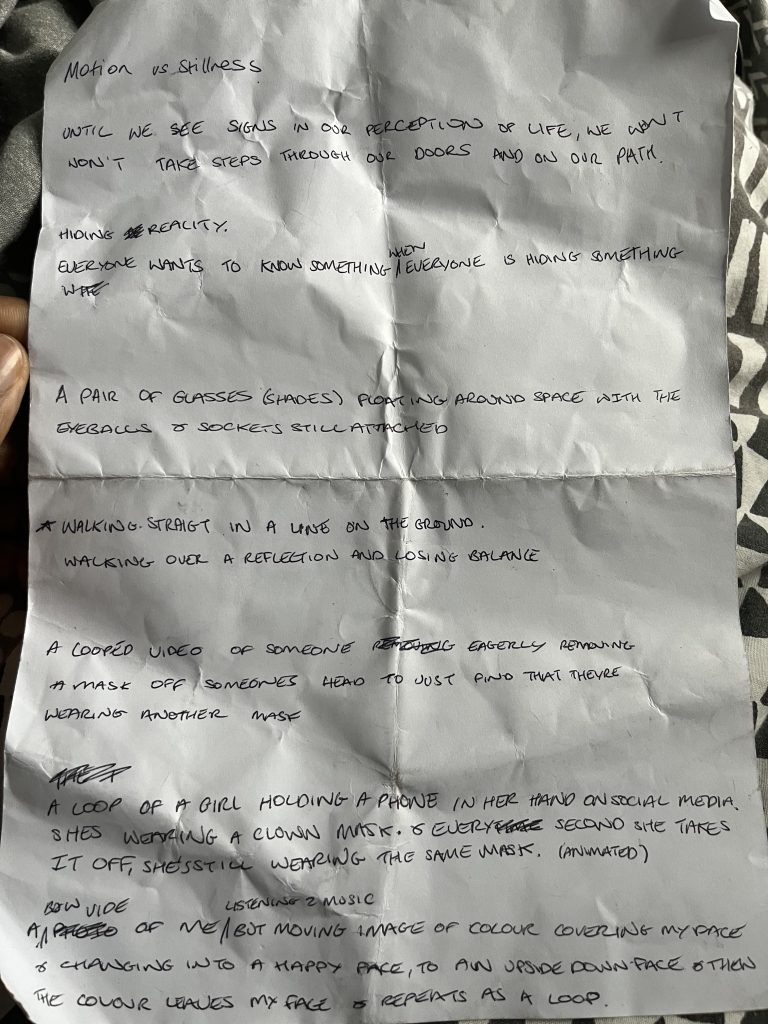 Motion vs Stillness
UNTIL WE SEE SIGNS IN OUR PERCEPTION OF LIFE, WE WON'T
WON'T TAKE STEPS THROUGH OUR DOORS AND ON OUR PATH.
HIDING REALITY.
EVERYONE WANTS TO KNOW SOMETHING WHEN EVERYONE IS HIDING SOMETHING
A PAIR OF GLASSES (SHADES) FLOATING AROUND SPACE WITH THE
EYEBALLS & SOCKETS STILL ATTACHED
* WALKING STRAIGT IN A LINE ON THE GROUND.
WALKING OVER A REFLECTION AND LOSING BALANCE
A LOOPED VIDEO OF SOMEONE EAGERLY REMOVING
A MASK OFF SOMEONES HEAD TO JUST FIND THAT THEYRE
WEARING ANOTHER MASK
A LOOP OF A GIRL HOLDING A PHONE IN HER HAND ON SOCIAL MEDIA.
SHES WEARING A CLOWN MASK. & EVERY SECOND SHE TAKES
IT OFF, SHE'S STILL WEARING THE SAME MASK. (ANIMATED)
A VIDE OF ME LISTENING 2 MUSIC BUT MOVING IMAGE OF COLOUR COVERING MY FACE
& CHANGING INTO A HAPPY FACE, TO AN UPSIDE DOWN FACE & THEN
THE COLOUR LEAVES MY FACE & REPEATS AS A LOOP.